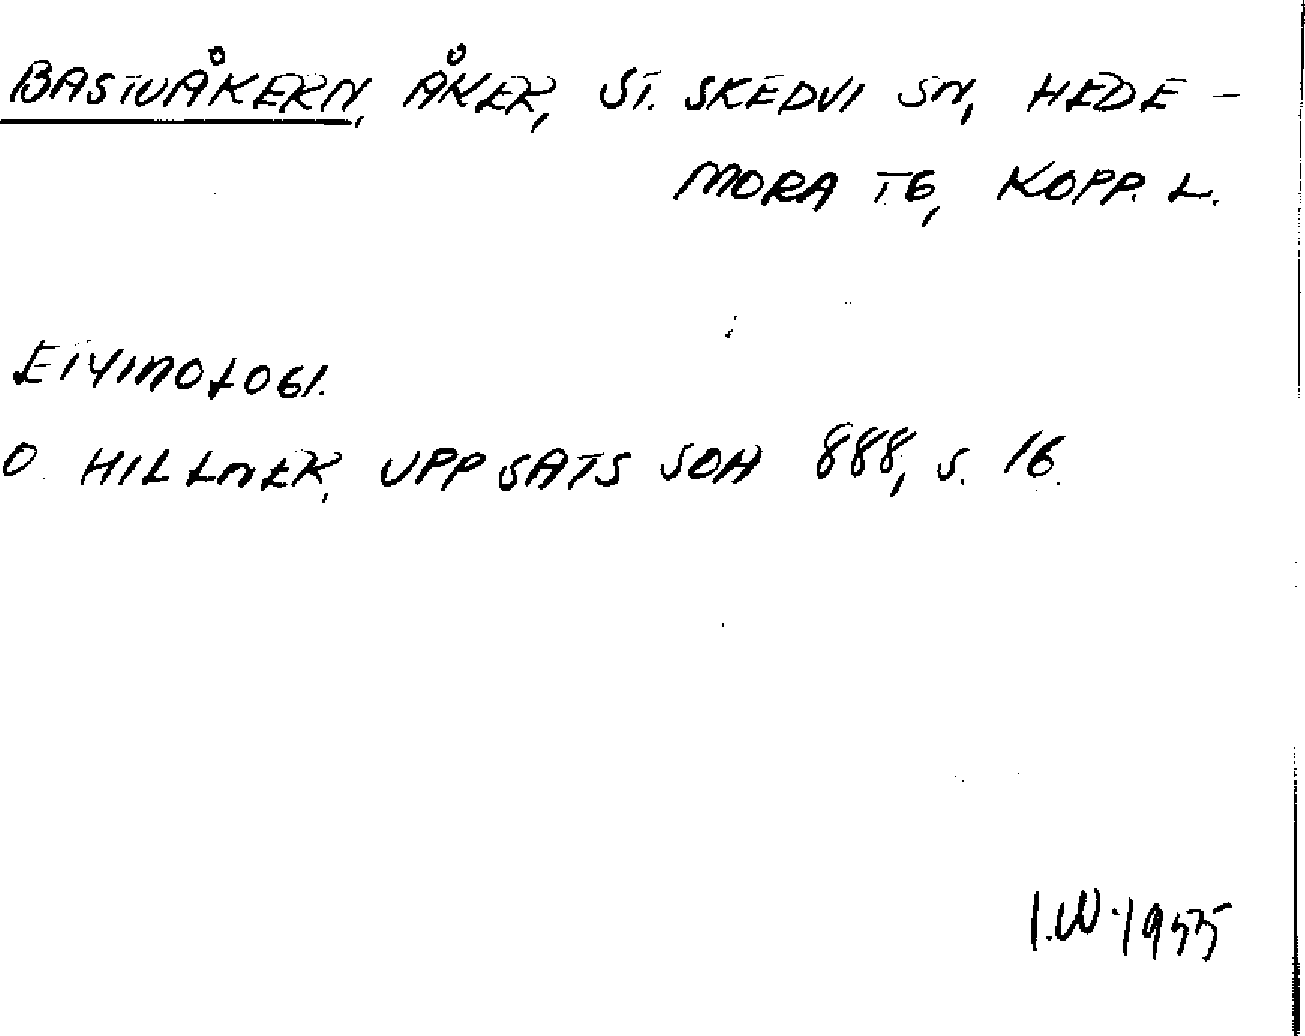 BASTUÅKERN, ÅKER, ST. SKEDVI SN, HEDE-
MORA TG, KOPP. L.
ETYMOLOGI.
O. HILLMER, UPPSATS SOA 888, S. 16.
I.W. 1955